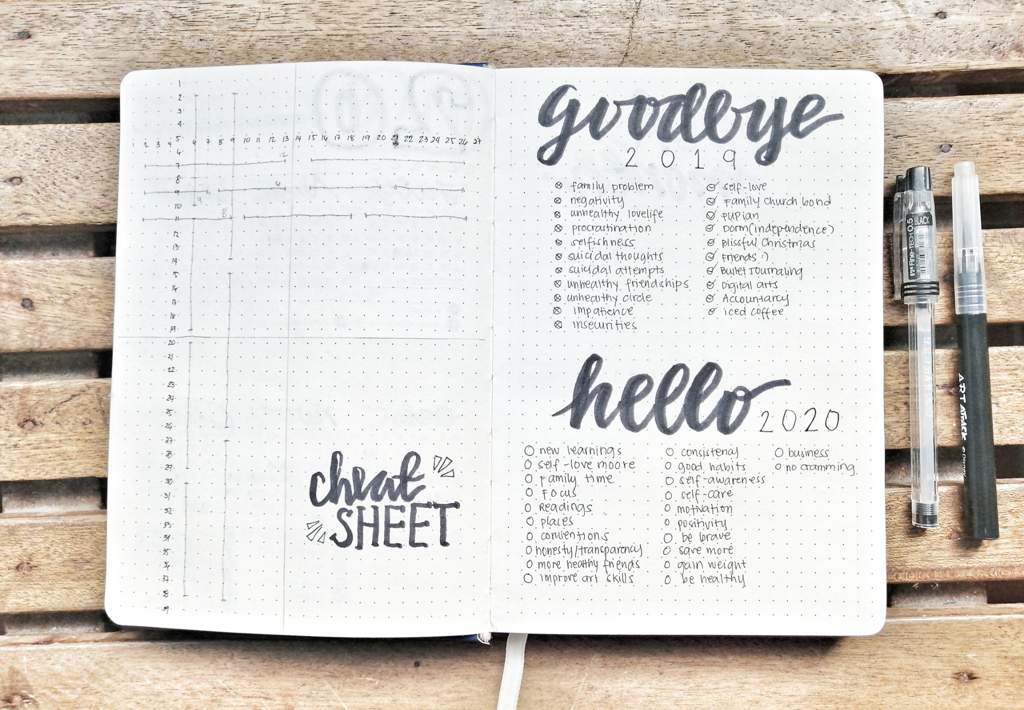 1
2
3
4
1 2 3 4 5 6 7 8 9 10 11 12 13 14 15 16 17 18 19 20 21 22 23 24 25 26 27
7
8
9
10
11
12
13
14
15
16
17
18
19
20
21
22
23
24
25
26
27
28
29
30
31
32
33
34
35
36
37
38
39
cheat
SHEET
goodbye
2019
family problem
negativity
unhealthy lovelife
procrastination
selfishness
suicidal thoughts
suicidal attempts
unhealthy friendships
unhealthy circle
impatience
insecurities
self-love
Family Church bond
PUPian
Dorm (independence)
Blissful Christmas
Friends :)
Bullet Journaling
Digital arts
Accountancy
iced coffee
hello 2020
new learnings
self-love moore
family time
FOCUS
Readings
places
conventions
honesty/transparency
more healthy friends
improve art skills
consistency
good habits
self-awareness
self-care
motivation
positivity
be brave
save more
gain weight
be healthy
business
no cramming
0.5 BLACK